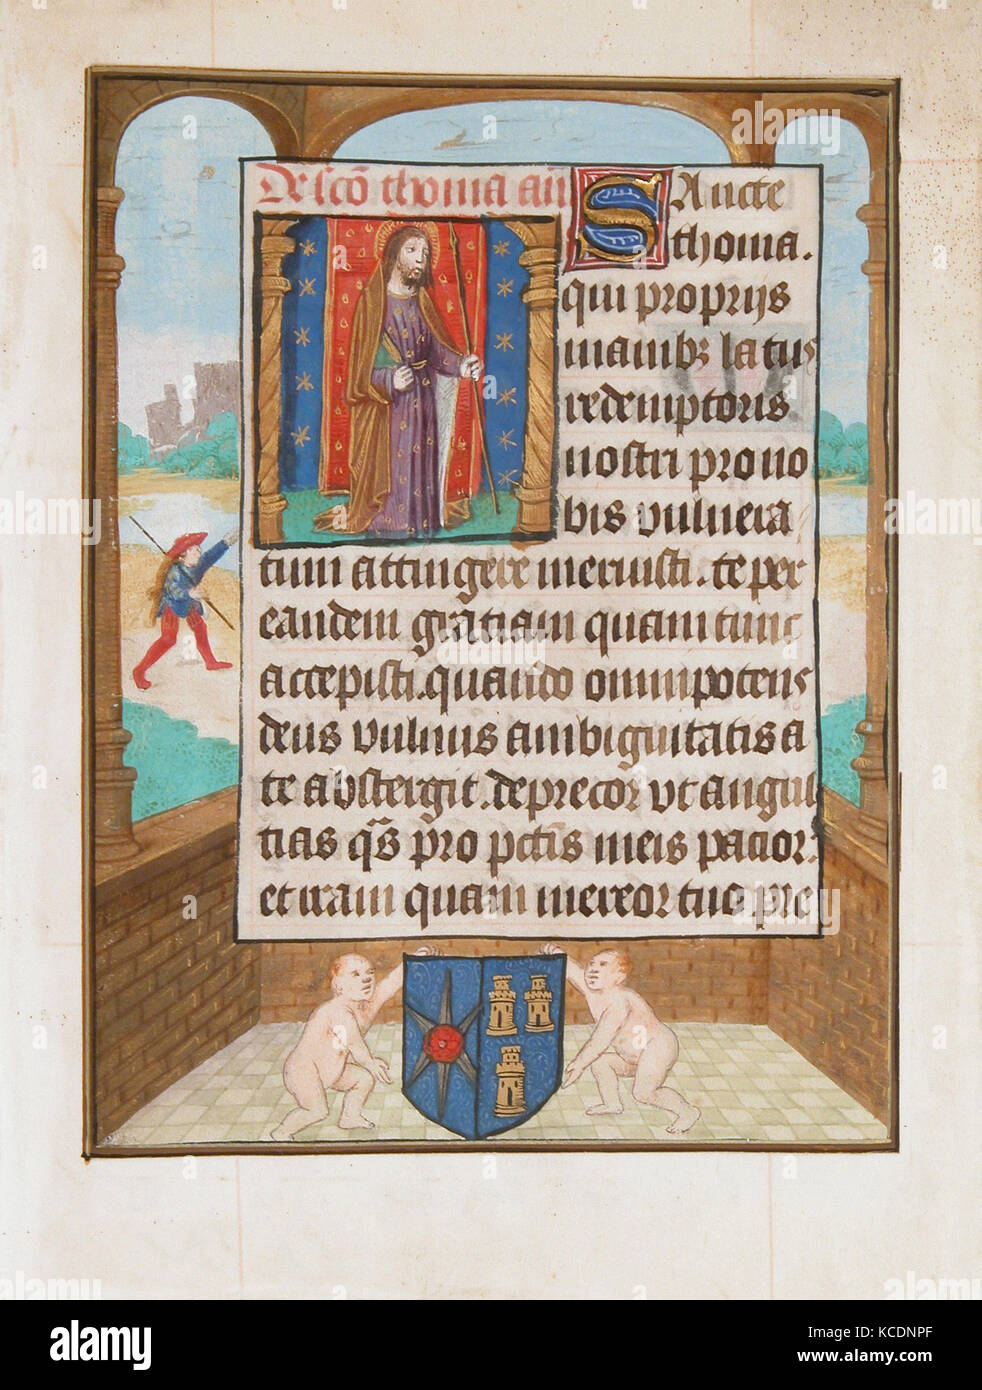 De sco thoma an
Sancte
thoma.
qui proprijs
manibz latus
redemptoris
nostri pro no
bis vulnera
tum attingere meruisti. te per
eandem gratiam quam tunc
accepisti. quando omnipotens
deus vulnus ambiguitatis a
te abstergit. deprecor vt angus
tias qs pro pctis meis patior.
et iram quam mereor tuo pre
a
alamy
Image ID: KCDNPF
www.alamy.com